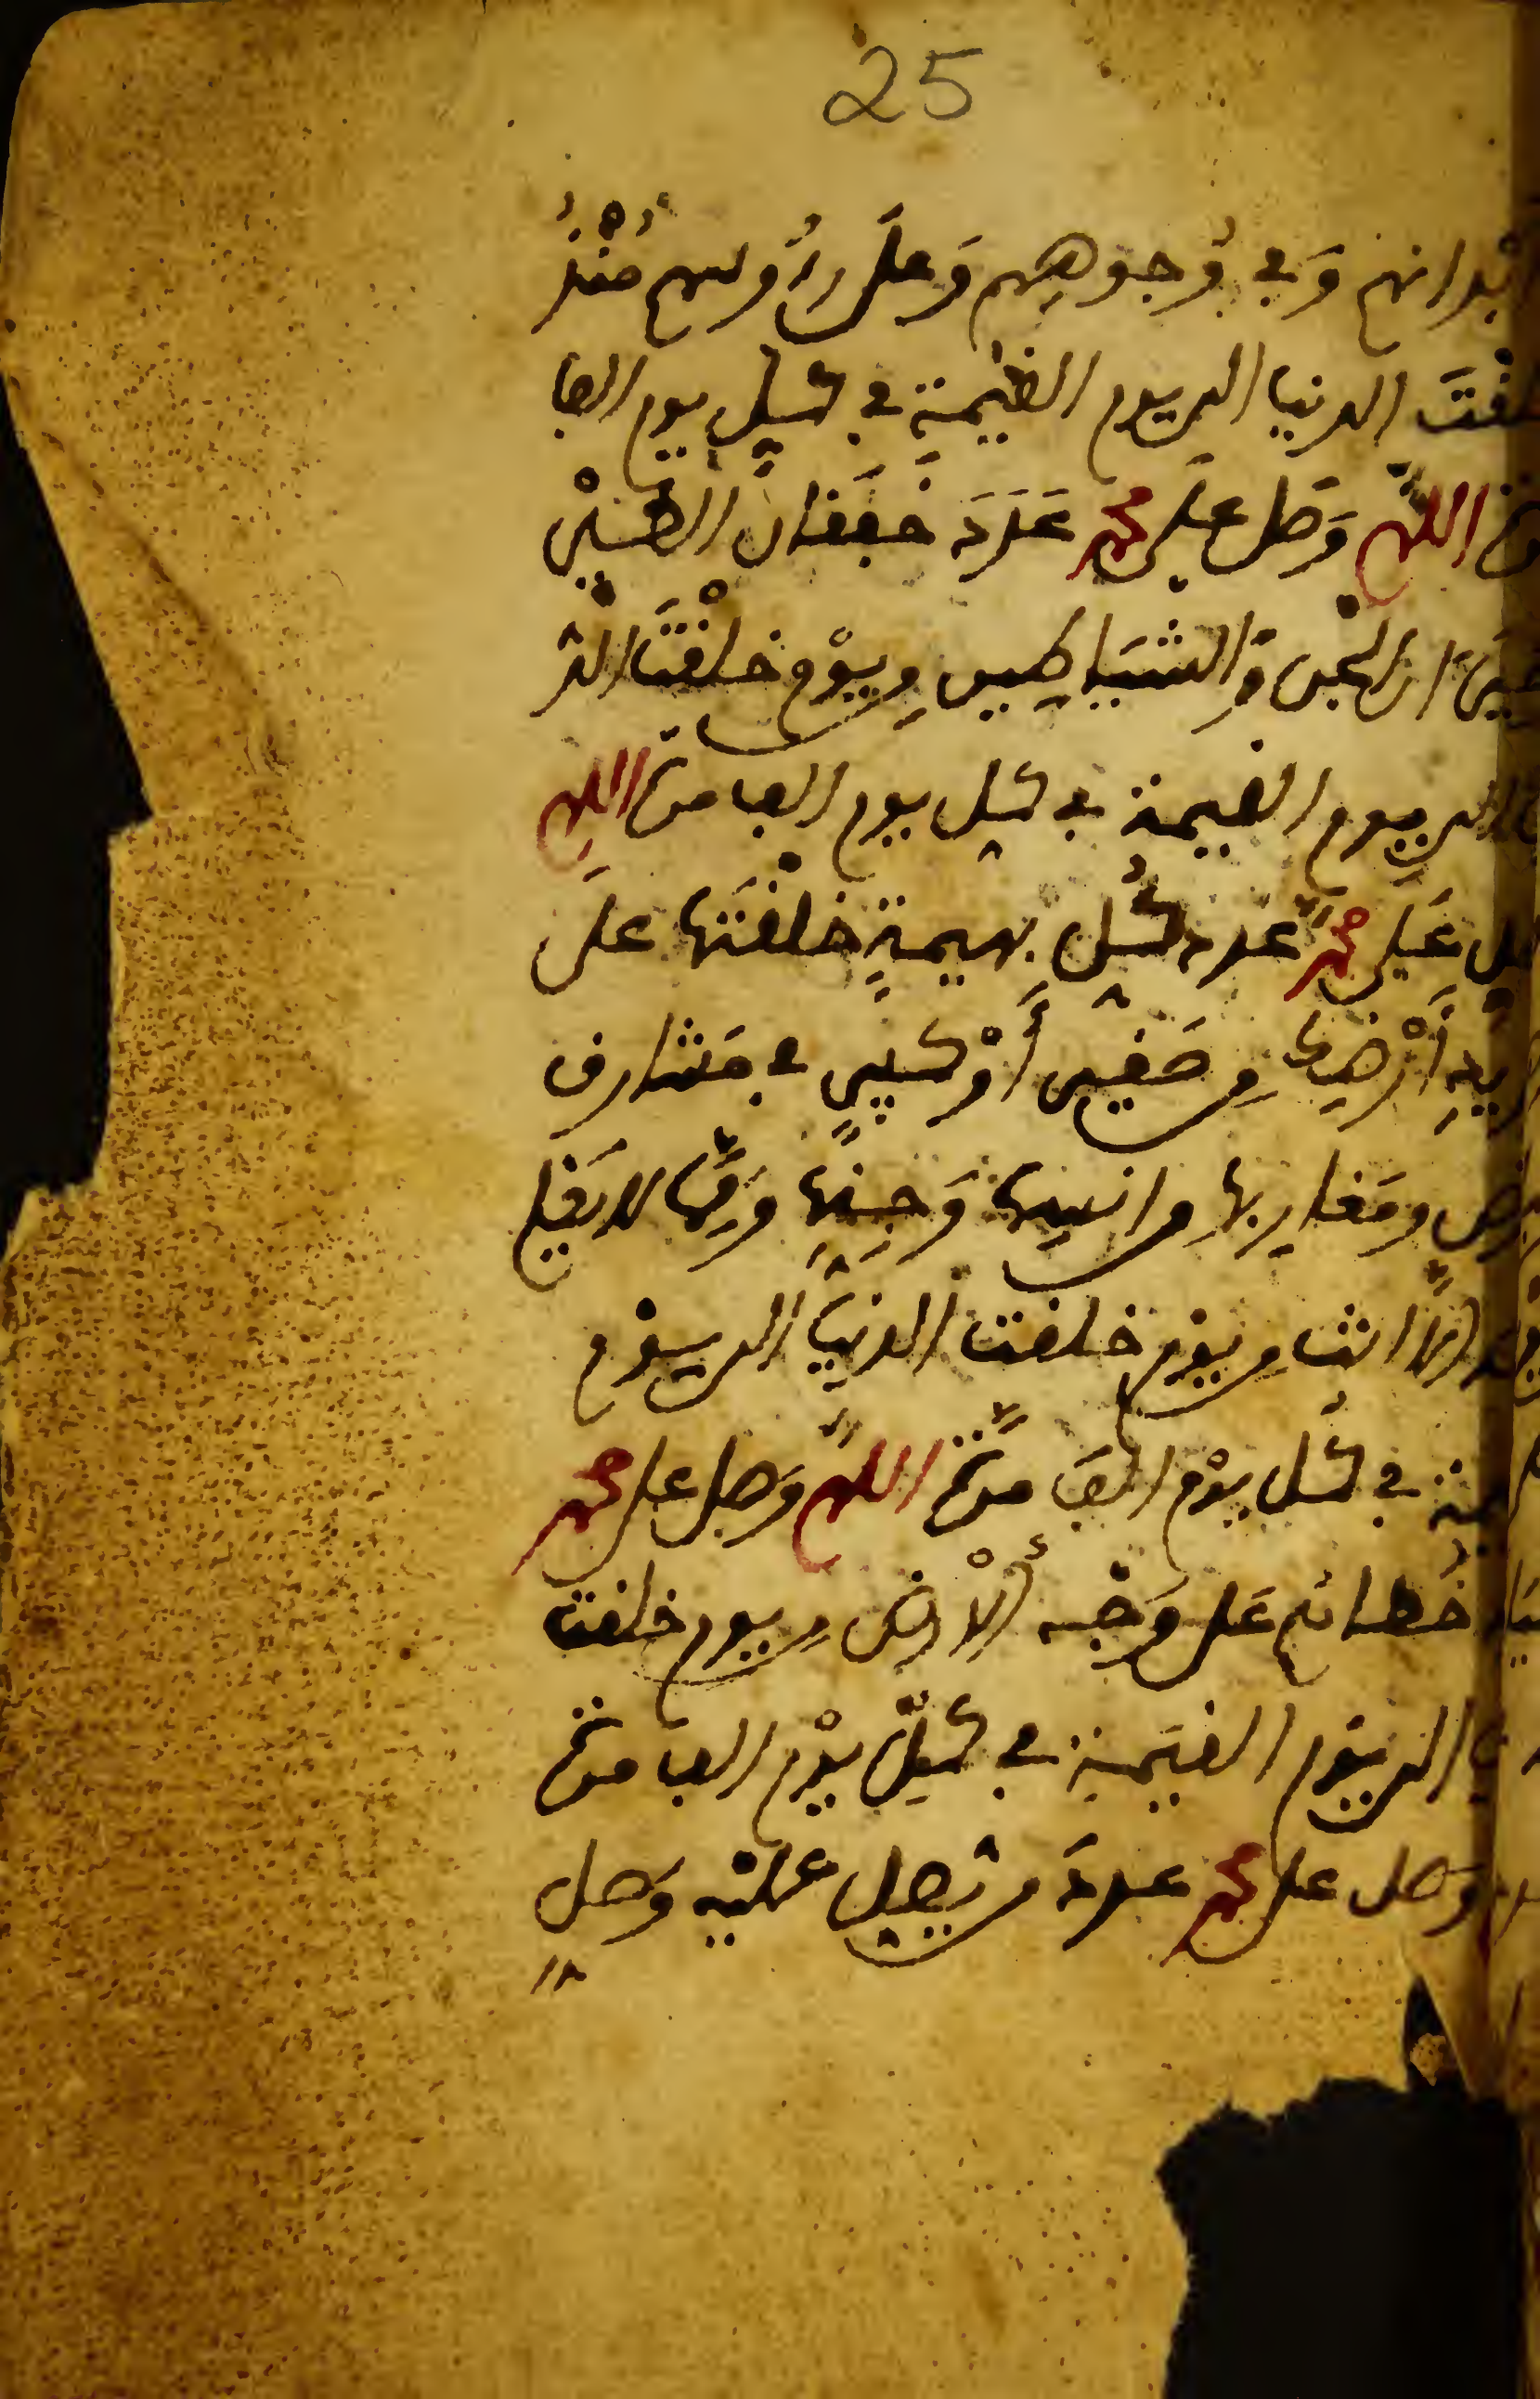 25
ابْدانهم وَفي وُجوههم وَعلَى رءُوسهم مُنْذُ
خلقْتَ الدنيا الى يوم القيمة في كل يوم الفا
مرة اللهم وَصل على محمد عَدَدَ خَفَقَانِ الطيْرِ
وَطَيَرَانِ الجنّ وَالشيَاطين من يوْم خلقْتَ الدُّ
نيا الى يوم القيمة في كل يوم الف مرة اللهم
وصل عَلَى محمد عدد كُل بهيمةٍ خلقْتَها على
جديد أرْضِك من صَغير أَوْ كبيرٍ في مَشَارق
الارض ومَغاربها من انسها وَجِنّها وَممّا لا يَعْلم
علمه الّا انت من يوْم خلقت الدنيَا الى يوْم
القيمة في كُل يوْم الفَ مَرّة اللهمّ وَصل على محمد
عدد خُطاهم عَلى وَجْه الْأَرض من يوم خلقت
الدنيا الى يوْم القيَمة في كلّ يوْم الف مرة
اللهم وَصل على محمد عددَ من يصلى عليْه وَصل